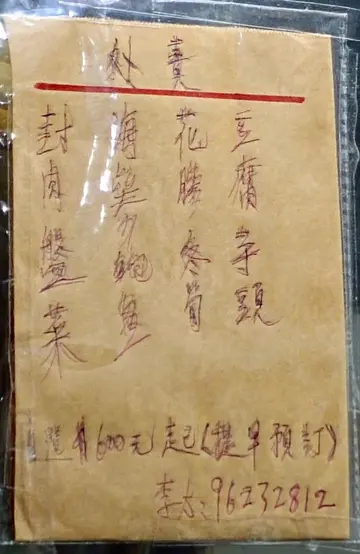 豆腐芋頭
花膠冬筍
海參鮑魚
封肉盤菜
$600元起(提早預訂)
李太:96232812